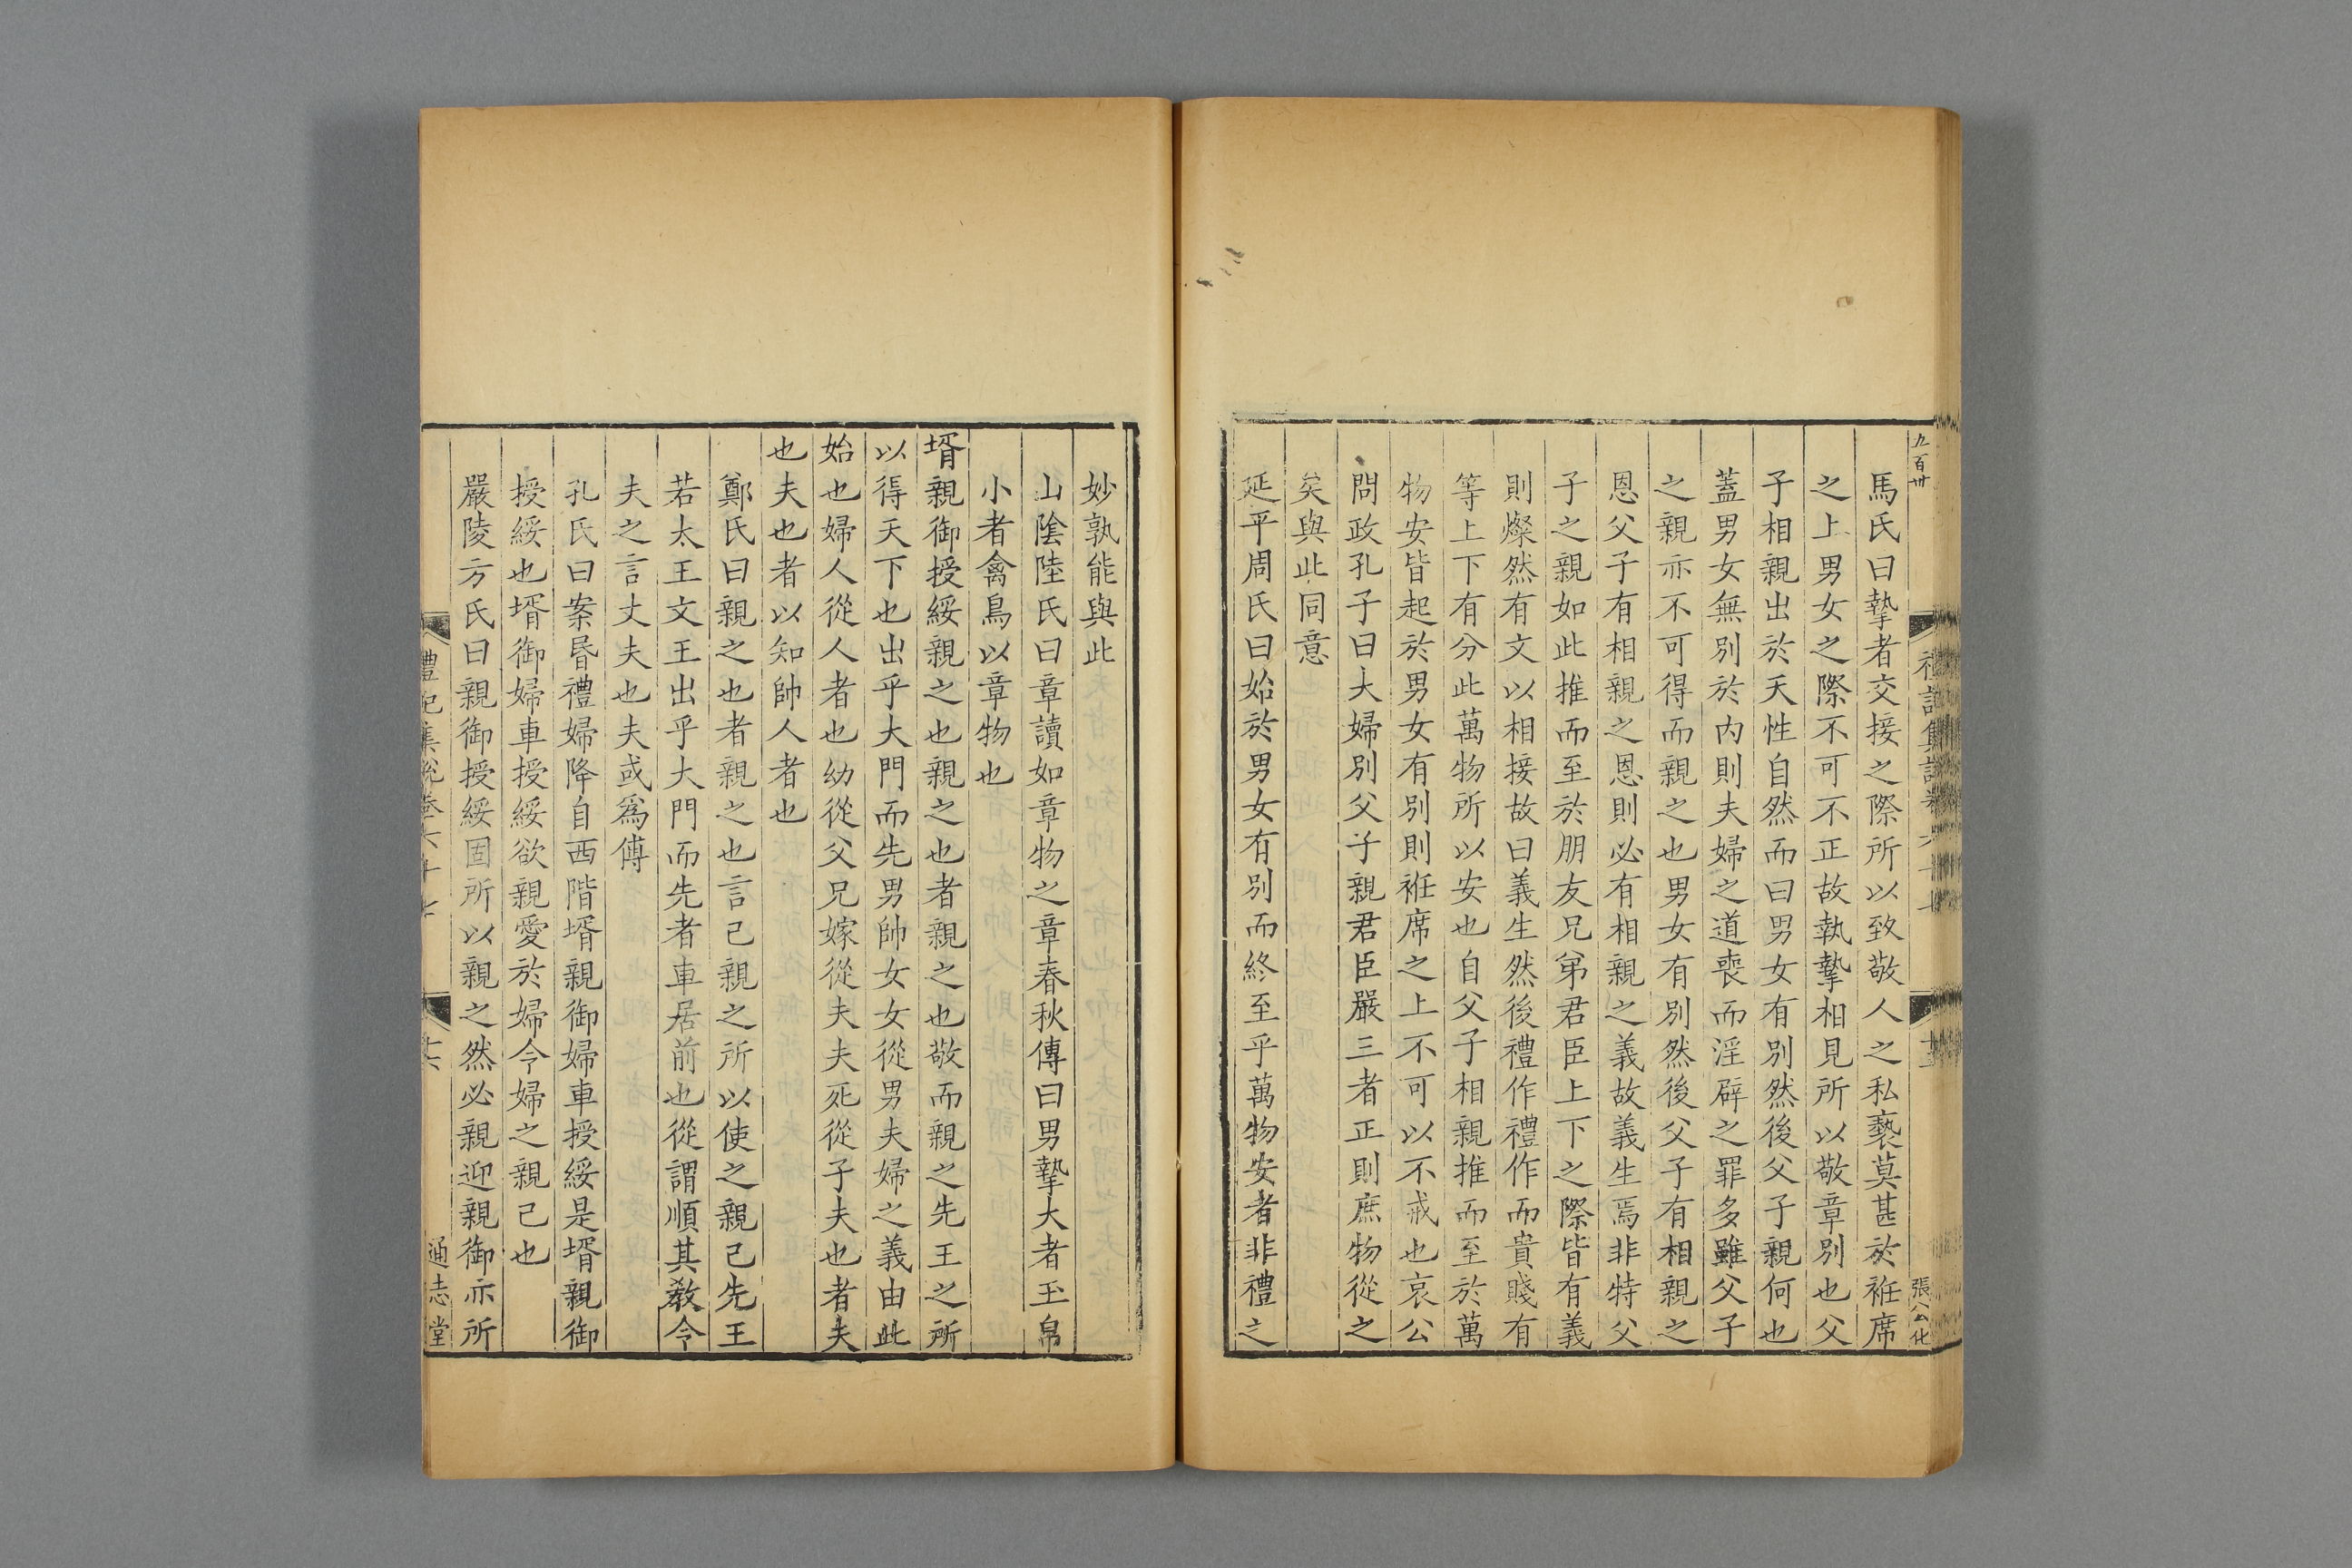 九百卅
禮記集說卷六十七
張公化
馬氏曰摯者交接之際所以致敬人之私褻莫甚於袵席
之上男女之際不可不正故執摯相見所以敬章別也父
子相親出於天性自然而曰男女有別然後父子親何也
蓋男女無別於內則夫婦之道喪而淫辟之罪多雖父子
之親亦不可得而親之也男女有別然後父子有相親之
恩父子有相親之恩則必有相親之義故義生焉非特父
子之親如此推而至於朋友兄弟君臣上下之際皆有義
則燦然有文以相接故曰義生然後禮作禮作而貴賤有
等上下有分此萬物所以安也自父子相親推而至於萬
物安皆起於男女有別則袵席之上不可以不戒也哀公
問政孔子曰夫婦別父子親君臣嚴三者正則庶物從之
矣與此同意
延平周氏曰始於男女有別而終至乎萬物安者非禮之
妙孰能與此
山陰陸氏曰章讀如章物之章春秋傳曰男摯大者玉帛
小者禽鳥以章物也
壻親御授綏親之也親之也者親之也敬而親之先王之所
以得天下也出乎大門而先男帥女女從男夫婦之義由此
始也婦人從人者也幼從父兄嫁從夫夫死從子夫也者夫
也夫也者以知帥人者也
鄭氏曰親之也者親之也言己親之所以使之親己先王
若太王文王出乎大門而先者車居前也從謂順其教令
夫之言丈夫也夫或爲傅
孔氏曰案昏禮婦降自西階壻親御婦車授綏是壻親御
授綏也壻御婦車授綏欲親愛於婦令婦之親己也
嚴陵方氏曰親御授綏固所以親之然必親迎親御亦所
禮記集說卷六十七
通志堂